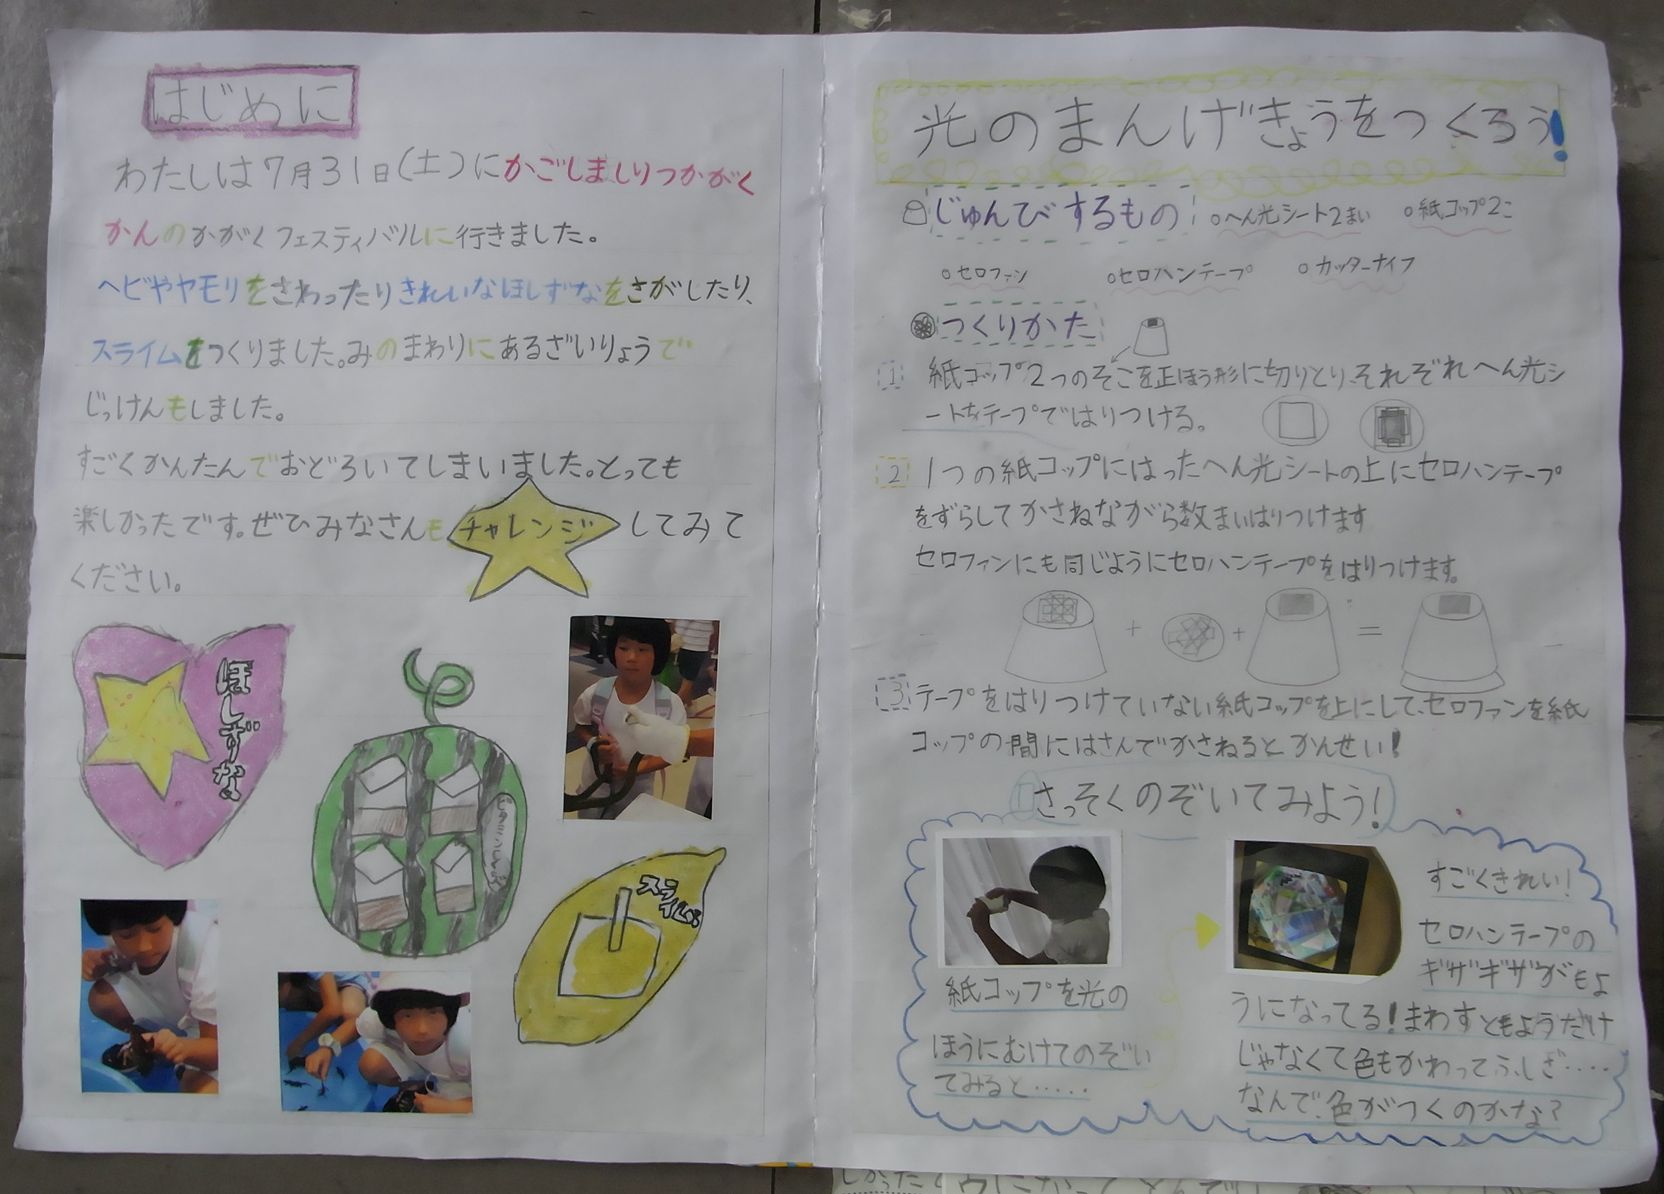 はじめに
わたしは7月31日(土)にかごしましりつかがく
かんのかがくフェスティバルに行きました。
ヘビやヤモリをさわったりきれいなほしずなをさがしたり、
スライムをつくりました。みのまわりにあるざいりょうで
じっけんもしました。
すごくかんたんでおどろいてしまいました。とっても
楽しかったです。ぜひみなさんもチャレンジしてみて
ください。
ほしずな
スライム
光のまんげきょうをつくろう!
じゅんびするもの ○へん光シート2まい ○紙コップ2こ
○セロファン ○セロハンテープ ○カッターナイフ
つくりかた
1 紙コップ2つのそこを正ほう形に切りとり、それぞれへん光シ
ートをテープではりつける。
2 1つの紙コップにはったへん光シートの上にセロハンテープ
をずらしてかさねながら数まいはりつけます
セロファンにも同じようにセロハンテープをはりつけます。
+ + =
3 テープをはりつけていない紙コップを上にして、セロファンを紙
コップの間にはさんでかさねるとかんせい!
さっそくのぞいてみよう!
紙コップを光の
ほうにむけてのぞい
てみると……
すごくきれい!
セロハンテープの
ギザギザがもよ
うになってる!まわすともようだけ
じゃなくて色もかわってふしぎ….
なんで、色がつくのかな?